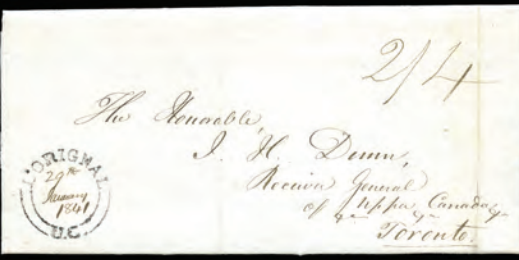 2/4
The Honorable
J. H. Dunn,
Receiver General
of Upper Canada
&c &c &c
Toronto.
L'ORIGNAL
29th
January
1841
U.C.